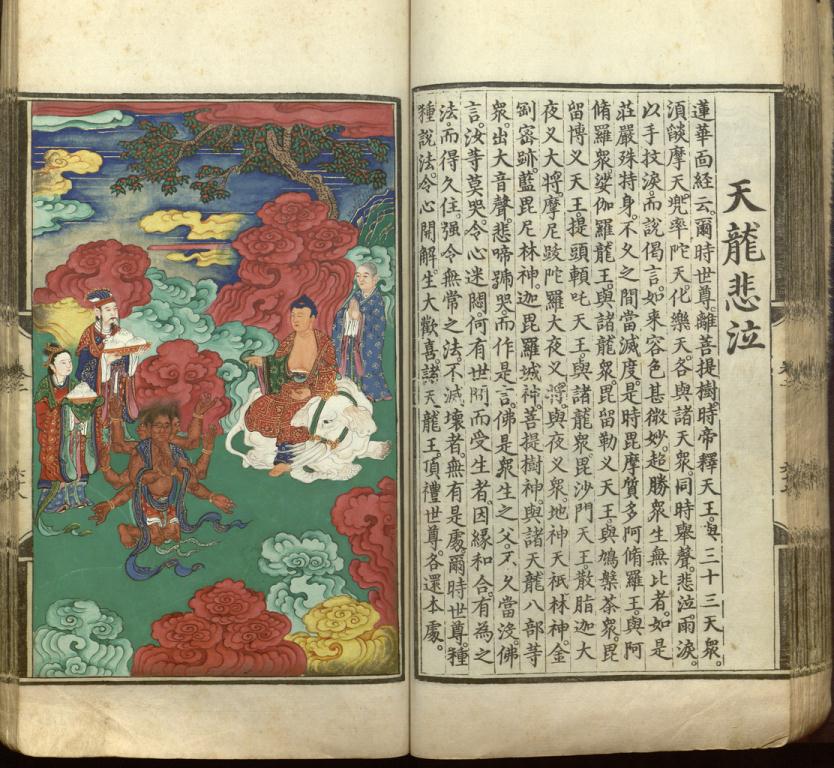 天龍悲泣
蓮華面經云。爾時世尊。離菩提樹。時帝釋天王。與三十三天衆。
須燄摩天。兜率陀天。化樂天。各與諸天衆。同時舉聲。悲泣雨淚。
以手抆淚。而說偈言。如來容色甚微妙。超勝衆生無比者。如是
莊嚴殊特身。不久之間當滅度。是時毘摩質多阿脩羅王。與阿
脩羅衆。娑伽羅龍王。與諸龍衆。毘留勒义天王。與鳩槃茶衆。毘
留博义天王。提頭賴吒天王。與諸龍衆。毘沙門天王。散脂迦大
夜义大將。摩尼跋陀羅大夜义將。與夜义衆。地神天祇林神。金
剛密跡。藍毘尼林神。迦毘羅城神。菩提樹神。與諸天龍八部等
衆。出大音聲。悲啼號哭。而作是言。佛是衆生之父。不久當沒。佛
言。汝等莫哭。令心迷悶。何有世間。而受生者。因緣和合。有為之
法。而得久住。強令無常之法。不滅壞者。無有是處。爾時世尊。種
種說法。令心開解。生大歡喜。諸天龍王。頂禮世尊。各還本處。